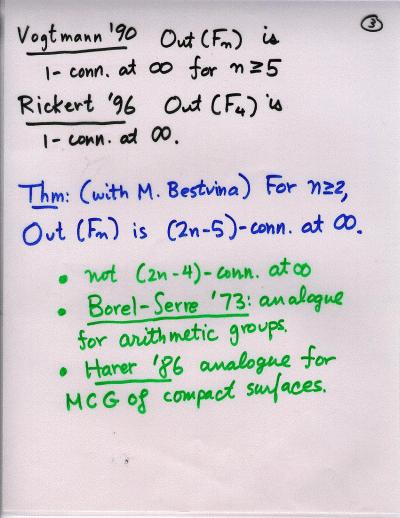 ③
Vogtmann '90 Out (Fn) is
1-conn. at ∞ for n≥5
Rickert '96 Out (F4) is
1-conn. at ∞.
Thm: (with M. Bestvina) For n≥2,
Out (Fn) is (2n-5)-conn. at ∞.
• not (2n-4)-conn. at ∞
• Borel-Serre '73: analogue
for arithmetic groups.
• Harer '86 analogue for
MCG of compact surfaces.